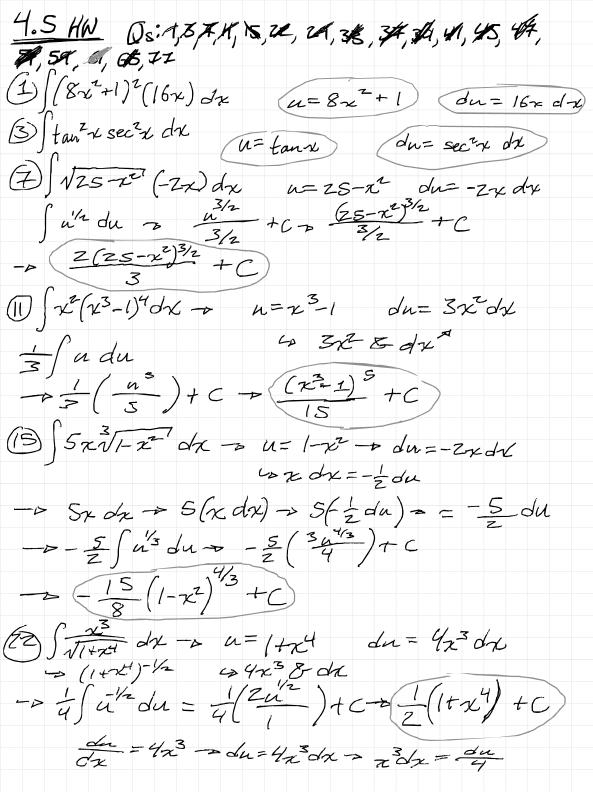 4.5 HW Qs: 1, 3, 7, 11, 15, 22,
, 77
① ∫(8x²+1)²(16x) dx u = 8x²+1 du = 16x dx
③ ∫tan²x sec²x dx u = tanx du = sec²x dx
⑦ ∫√25-x² (-2x) dx u = 25-x² du = -2x dx
∫u^1/2 du → u^3/2 / 3/2 + C → (25-x²)^3/2 / 3/2 + C
→ 2(25-x²)^3/2 / 3 + C
⑪ ∫x²(x³-1)⁴dx → u = x³-1 du = 3x²dx
↳ 3x² & dx
1/3 ∫u du
→ 1/3 (u⁵/5) + C → (x³-1)⁵/15 + C
⑮ ∫5x ∛1-x² dx → u = 1-x² → du = -2x dx
↳ x dx = -1/2 du
→ 5x dx → 5(x dx) → 5(-1/2 du) → = -5/2 du
→ -5/2 ∫u^1/3 du → -5/2 (3u^4/3 / 4) + C
→ -15/8 (1-x²)^4/3 + C
㉒ ∫x³/√1+x⁴ dx → u = 1+x⁴ du = 4x³ dx
↳ (1+x⁴)^-1/2 ↳ 4x³ & dx
→ 1/4 ∫u^-1/2 du = 1/4 (2u^1/2 / 1) + C → 1/2 (1+x⁴) + C
du/dx = 4x³ → du = 4x³dx → x³dx = du/4